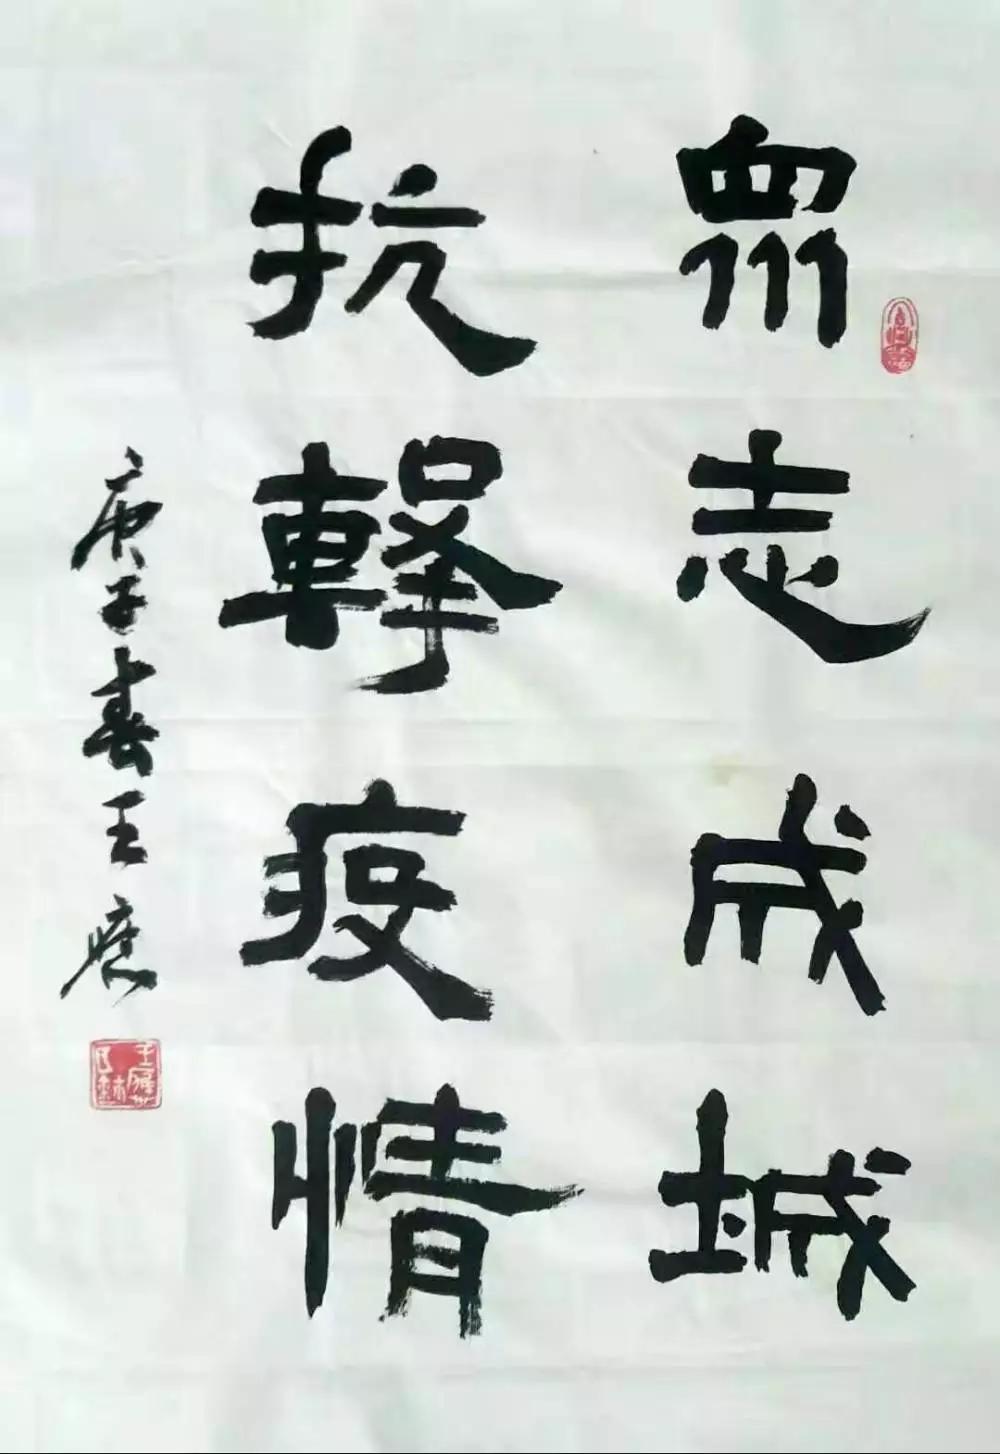 眾志成城
抗擊疫情
庚子春王應